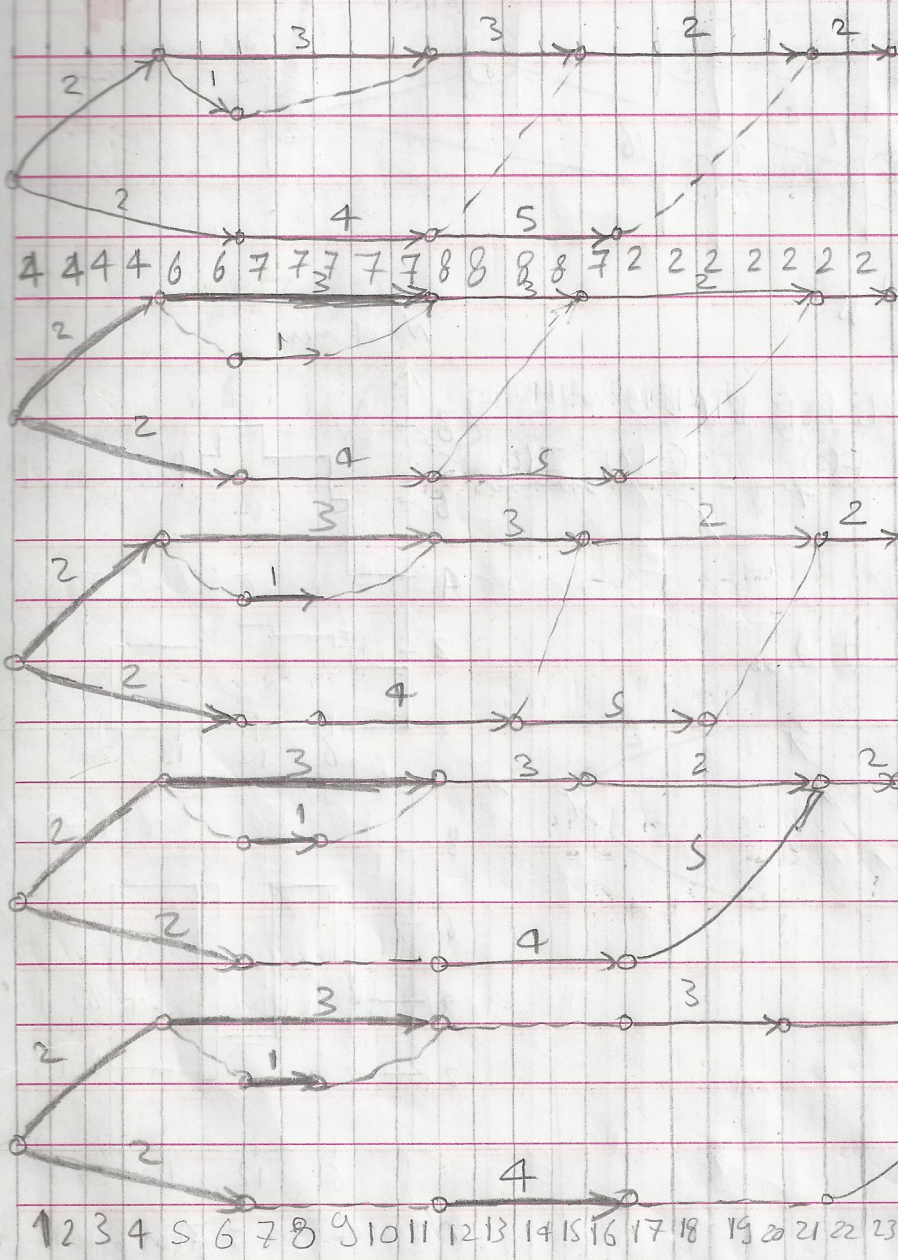 3 3 2 2
2 1
2 4 5
4 4 4 4 6 6 7 7 7 7 7 8 8 8 8 7 2 2 2 2 2 2 2
3 3 2
2 1
2 4 5
3 3 2 2
2 1
2 4 5
3 3 2 2
2 1 5
2 4
3 3
2 1
2 4
1 2 3 4 5 6 7 8 9 10 11 12 13 14 15 16 17 18 19 20 21 22 23